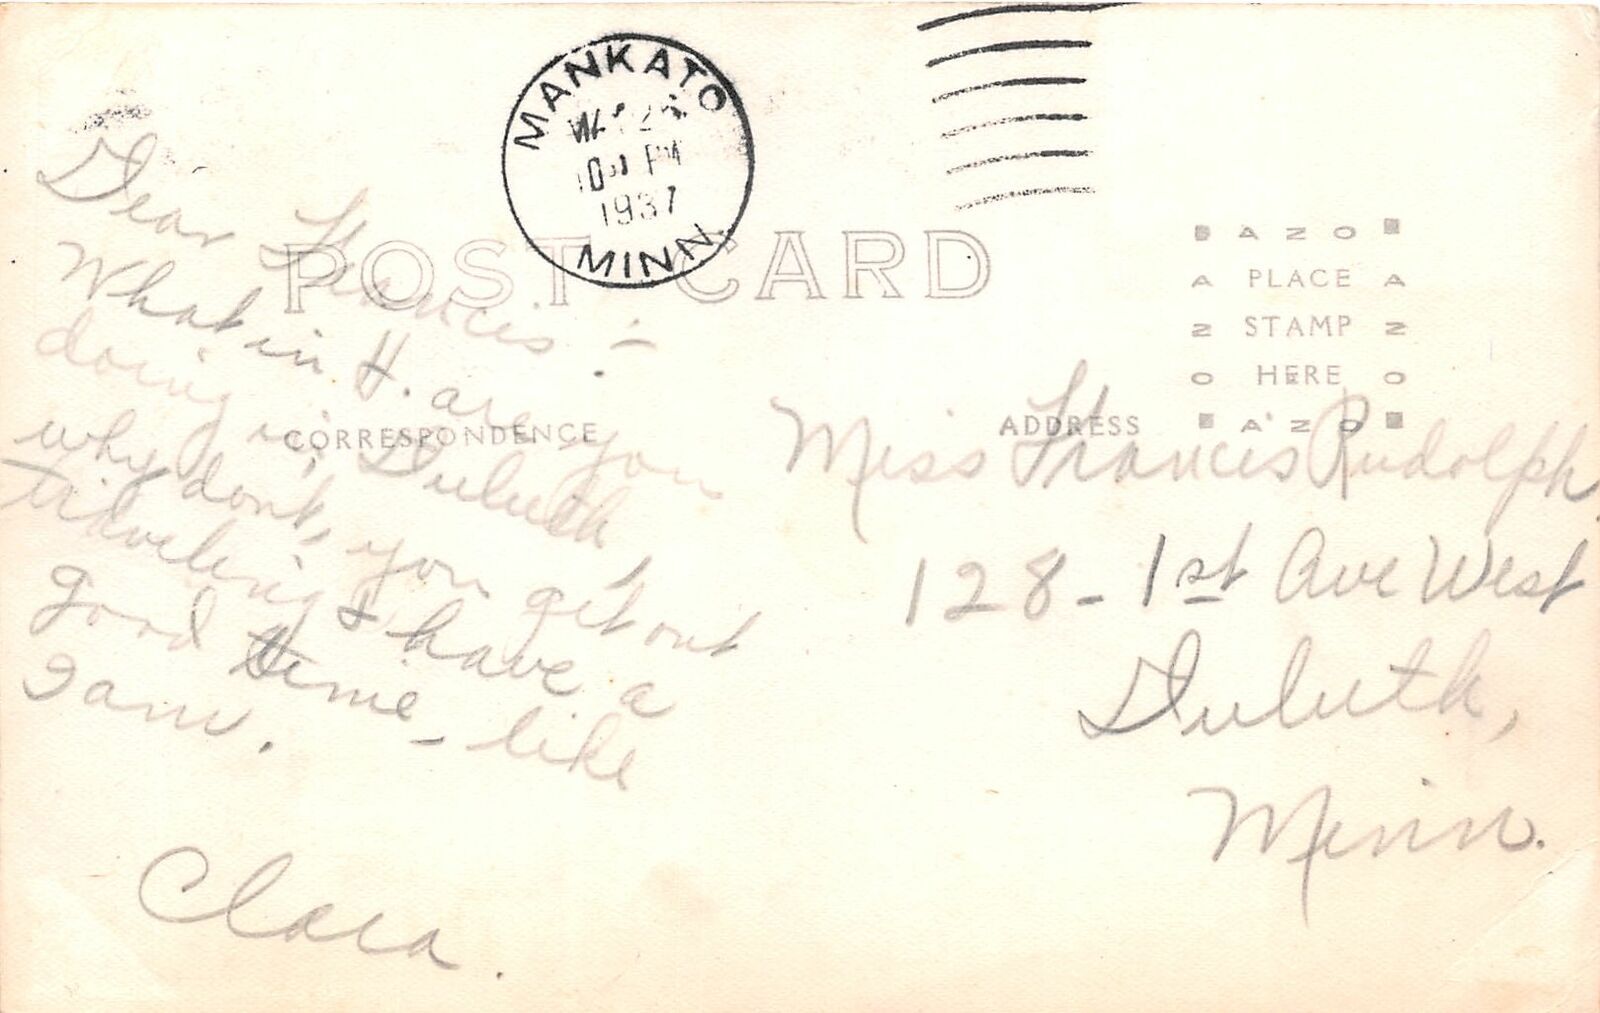 MANKATO
10 PM
1937
MINN.
POST CARD
AZO
PLACE
STAMP
HERE
AZO
CORRESPONDENCE
ADDRESS
Dear Francis:-
What in H. are you
doing in Duluth,
why dont, you get out
traveling & have a
good time - like
I am.
Clara.
Miss Francis Rudolph.
128 - 1st Ave West
Duluth,
Minn.